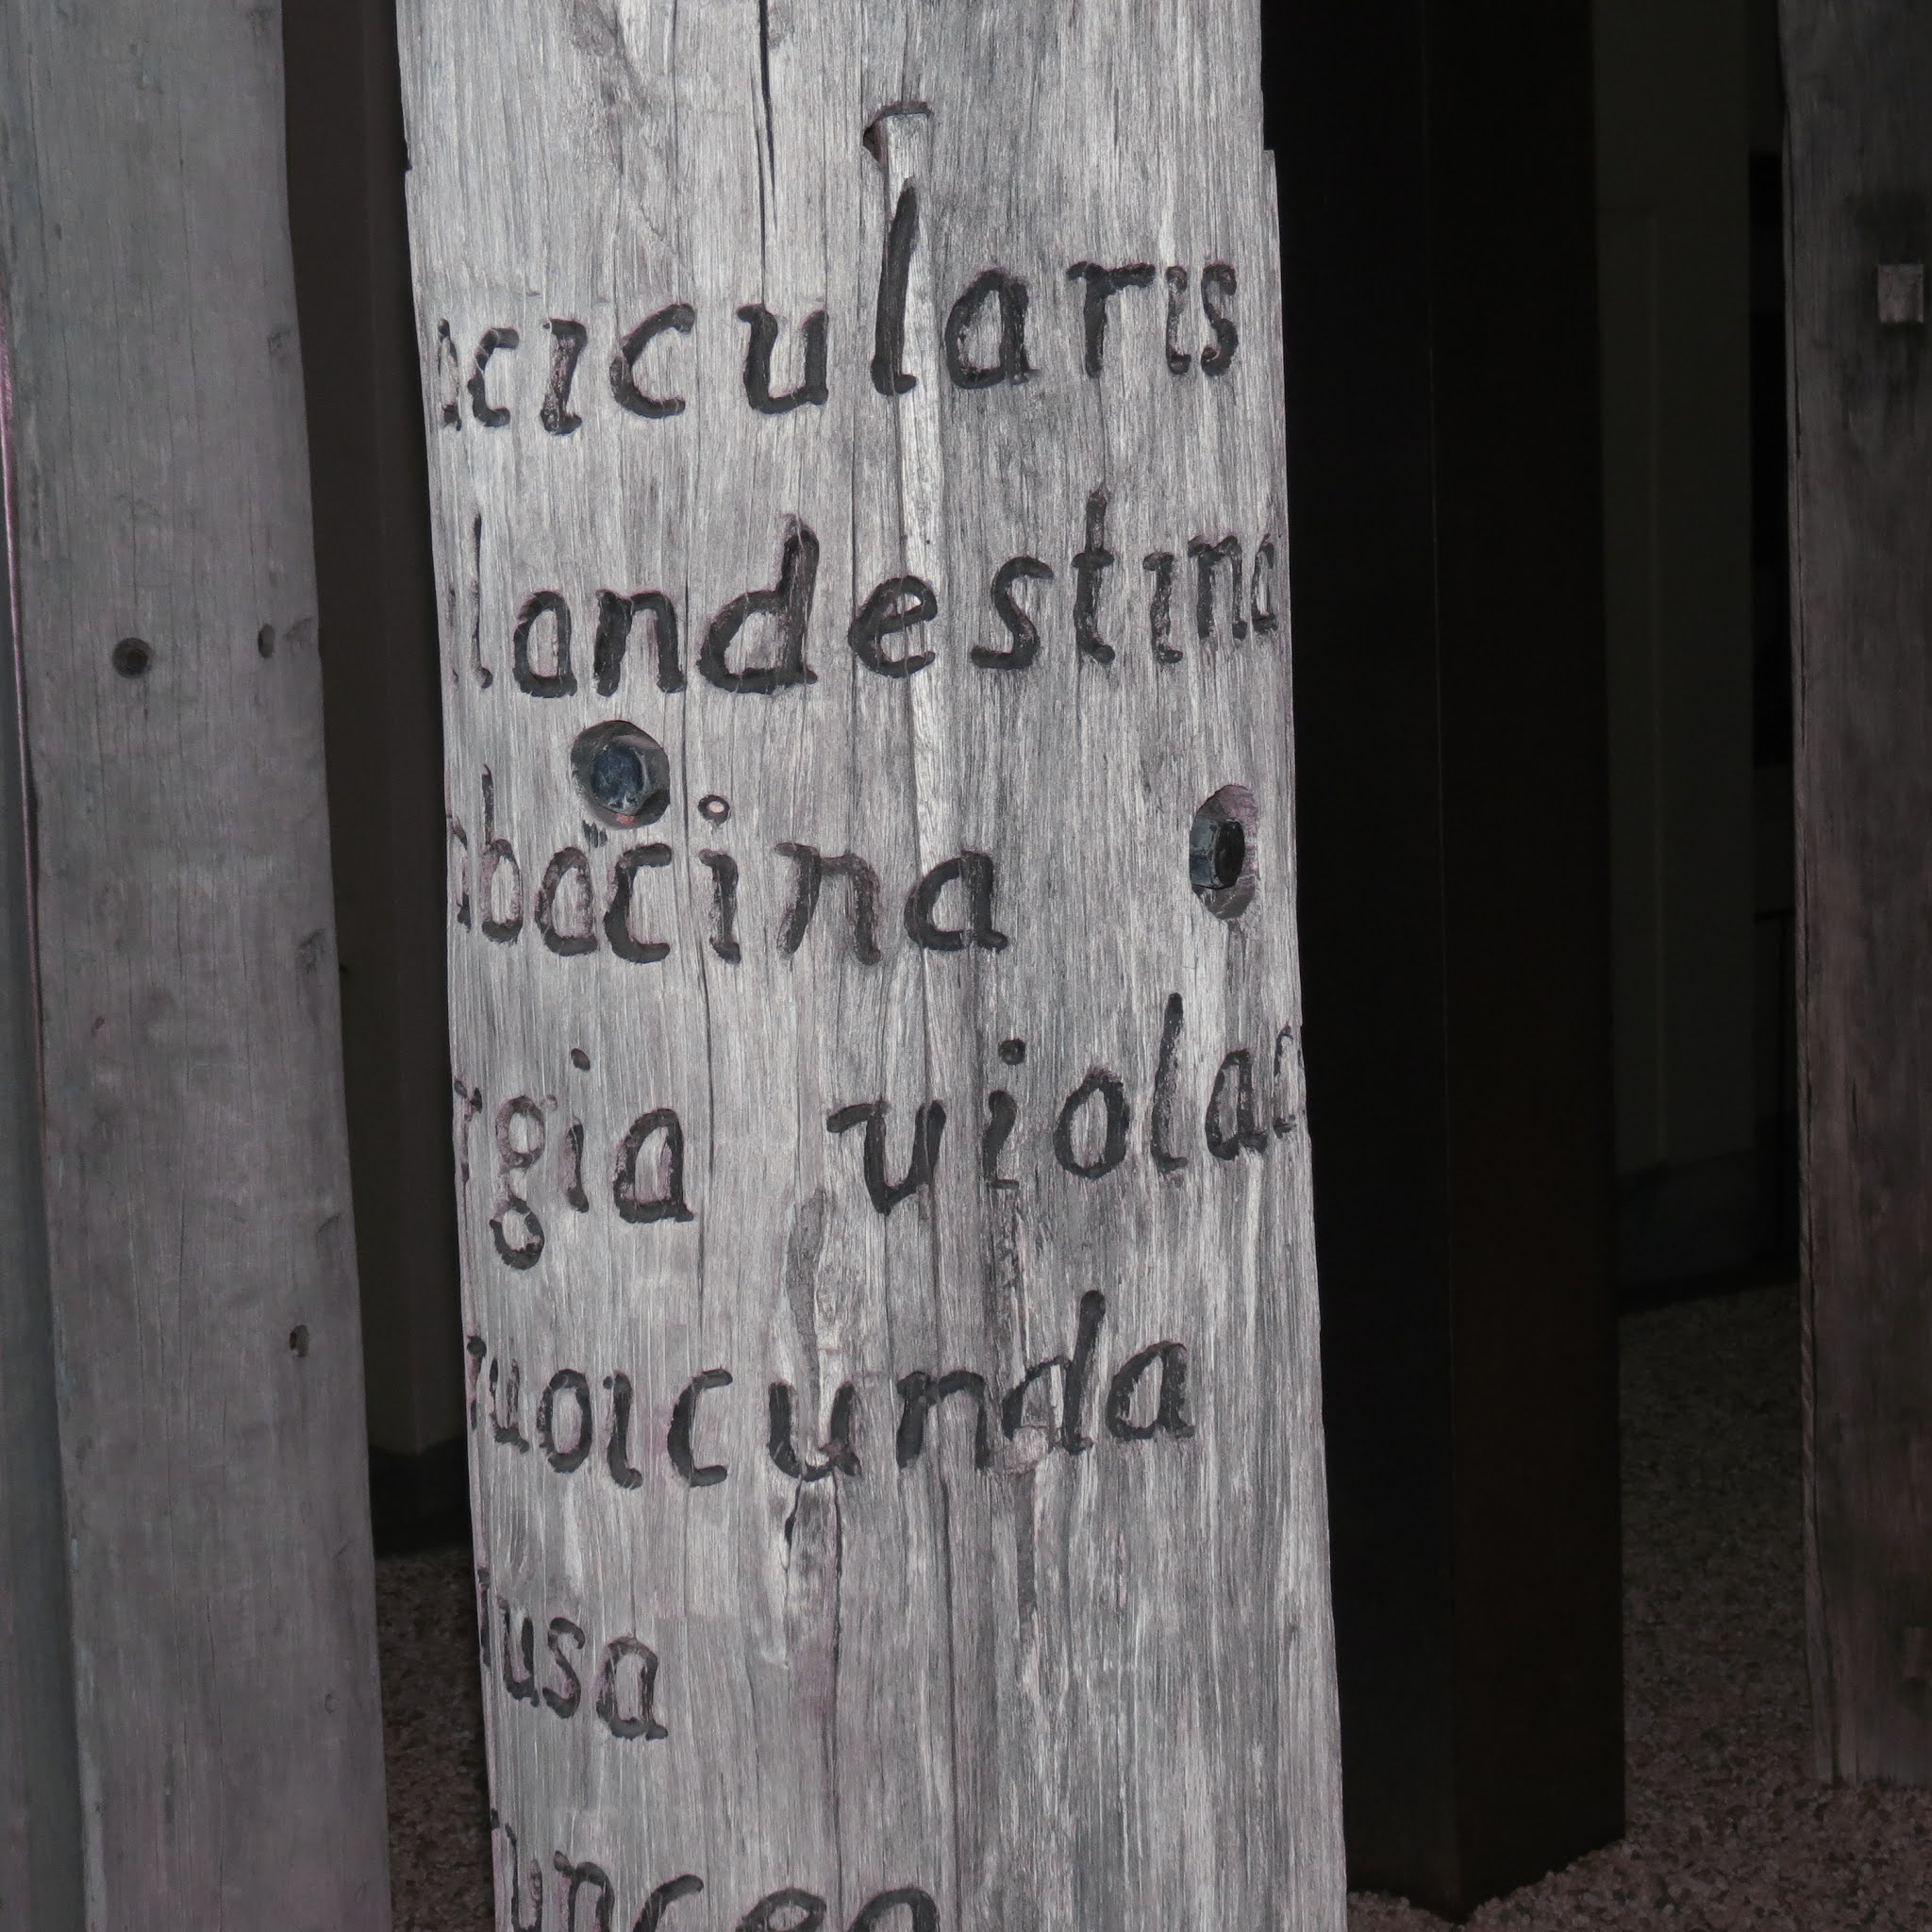 cicularis
landestina
bacina
rgia violac
uoicunda
usa
uncea